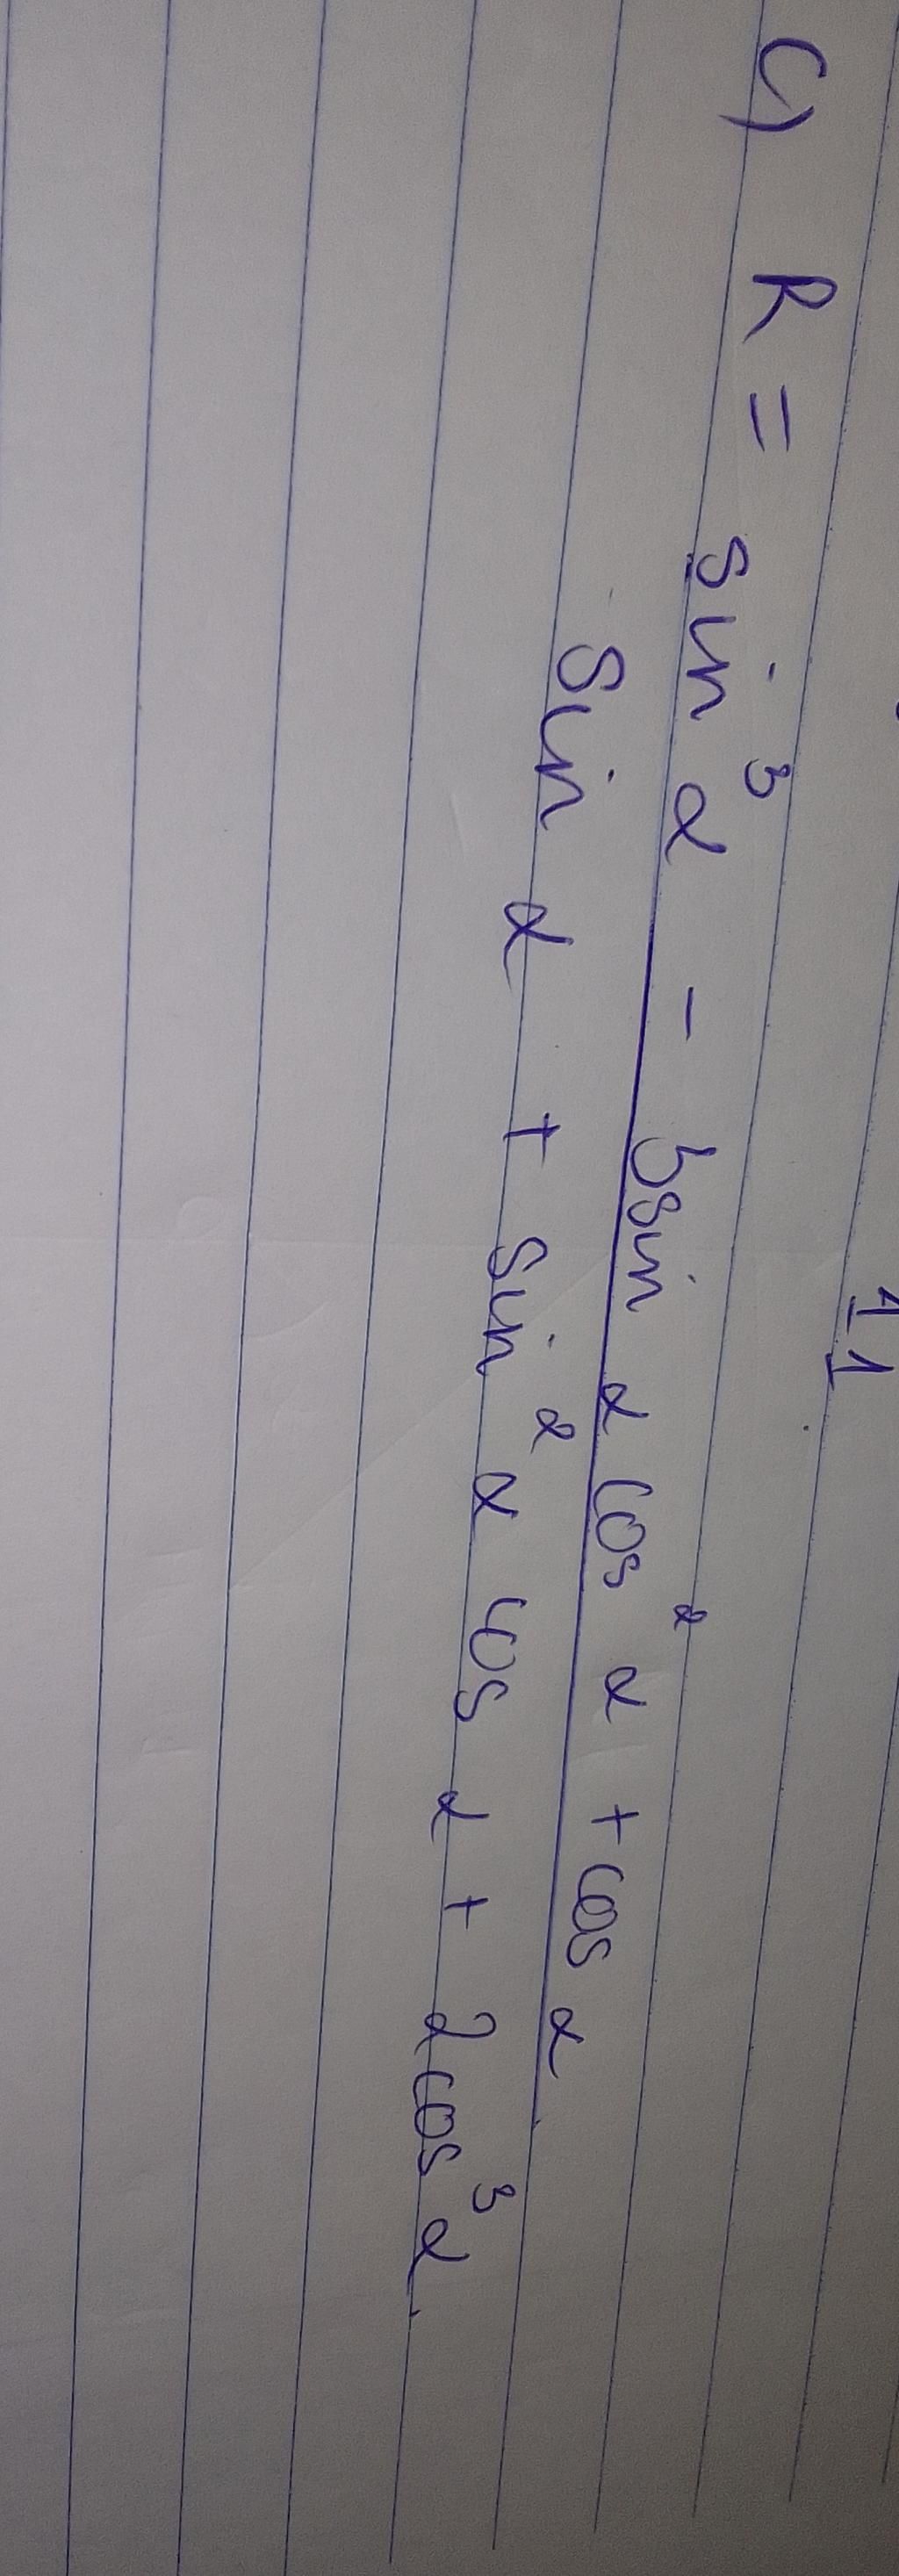 11
c) R = sin³α - 5sin α cos² α + cos α
sin α + sin² α cos α + 2cos³ α